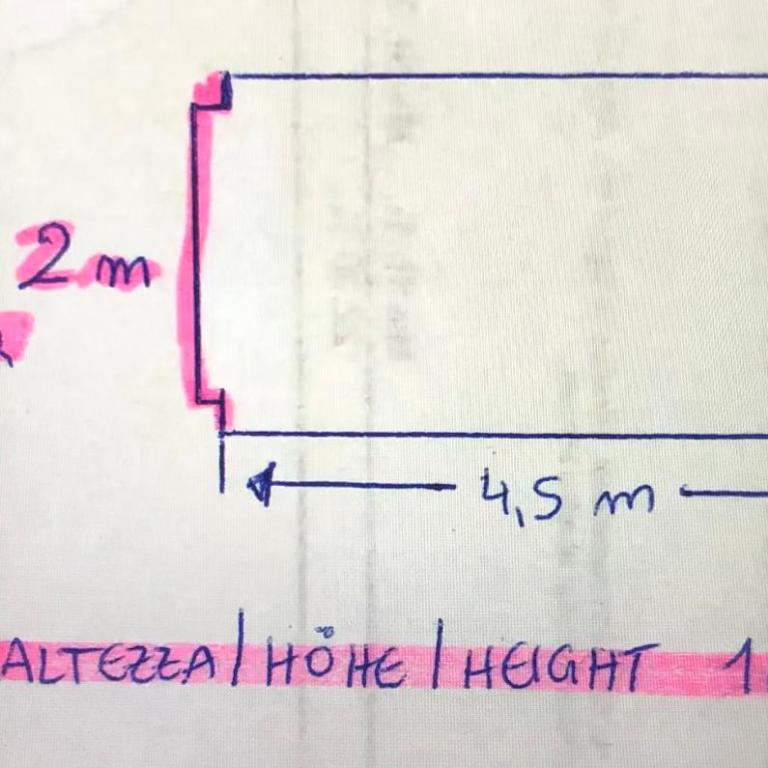 2 m
4,5 m
ALTEZZA / HÖHE / HEIGHT 1